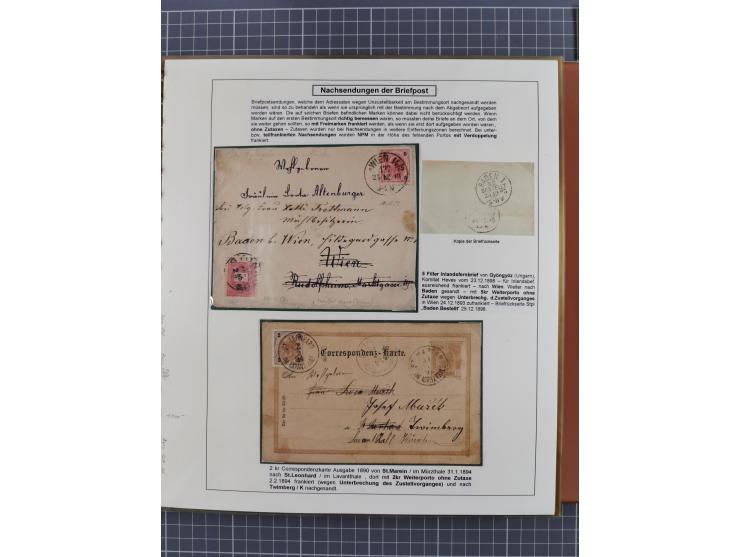 Nachsendungen der Briefpost
Briefpostsendungen, welche dem Adressaten wegen Unzustellbarkeit am Bestimmungsort nachgesandt werden
müssen, sind so zu behandeln als wenn sie ursprünglich mit der Bestimmung nach dem Abgabeort aufgegeben
werden. Die auf solchen Briefen befindlichen Marken können dabei nicht berücksichtigt werden. Wenn
Marken auf den ersten Bestimmungsort richtig bemessen waren, so mussten deren Briefe an dem Ort, von dem
sie weiter gehen sollten, so mit Freimarken frankiert werden, als wenn sie erst dort aufgegeben worden wären,
ohne Zutaxen – Zutaxen wurden nur bei Nachsendungen in weitere Entfernungszonen berechnet. Bei unter-
bzw. teilfrankierten Nachsendungen wurden NPM in der Höhe des fehlenden Portos mit Verdoppelung
frankiert.
WIEN
Wohlgeboren
Fräulein Altenburger
Mühlbesitzerin
Baaden bei Wien, Hildegardgasse
Wien
Rudolfsheim, Marktgasse
BADEN
Kopie der Briefrückseite
5 Filler Inlandsfernbrief von Gyöngyöz (Ungarn),
Komitat Heves vom 23.12.1898 – für Inlandsbef.
ausreichend frankiert – nach Wien. Weiter nach
Baden gesandt – mit 5kr Weiterporto ohne
Zutaxe wegen Unterbrechg. d.Zustellvorganges
in Wien 24.12.1893 zufrankiert – Briefrückseite Stpl
„Baden Bestellt" 25.12.1898.
Correspondenz-Karte.
ST. LEONHARD
ST. MAREIN
Josef Marik
a. Twimberg
2 kr Correspondenzkarte Ausgabe 1890 von St.Marein / im Mürzthale 31.1.1894
nach St.Leonhard / im Lavanthale , dort mit 2kr Weiterporto ohne Zutaxe
2.2.1894 frankiert (wegen Unterbrechung des Zustellvorganges) und nach
Twimberg / K nachgesandt.